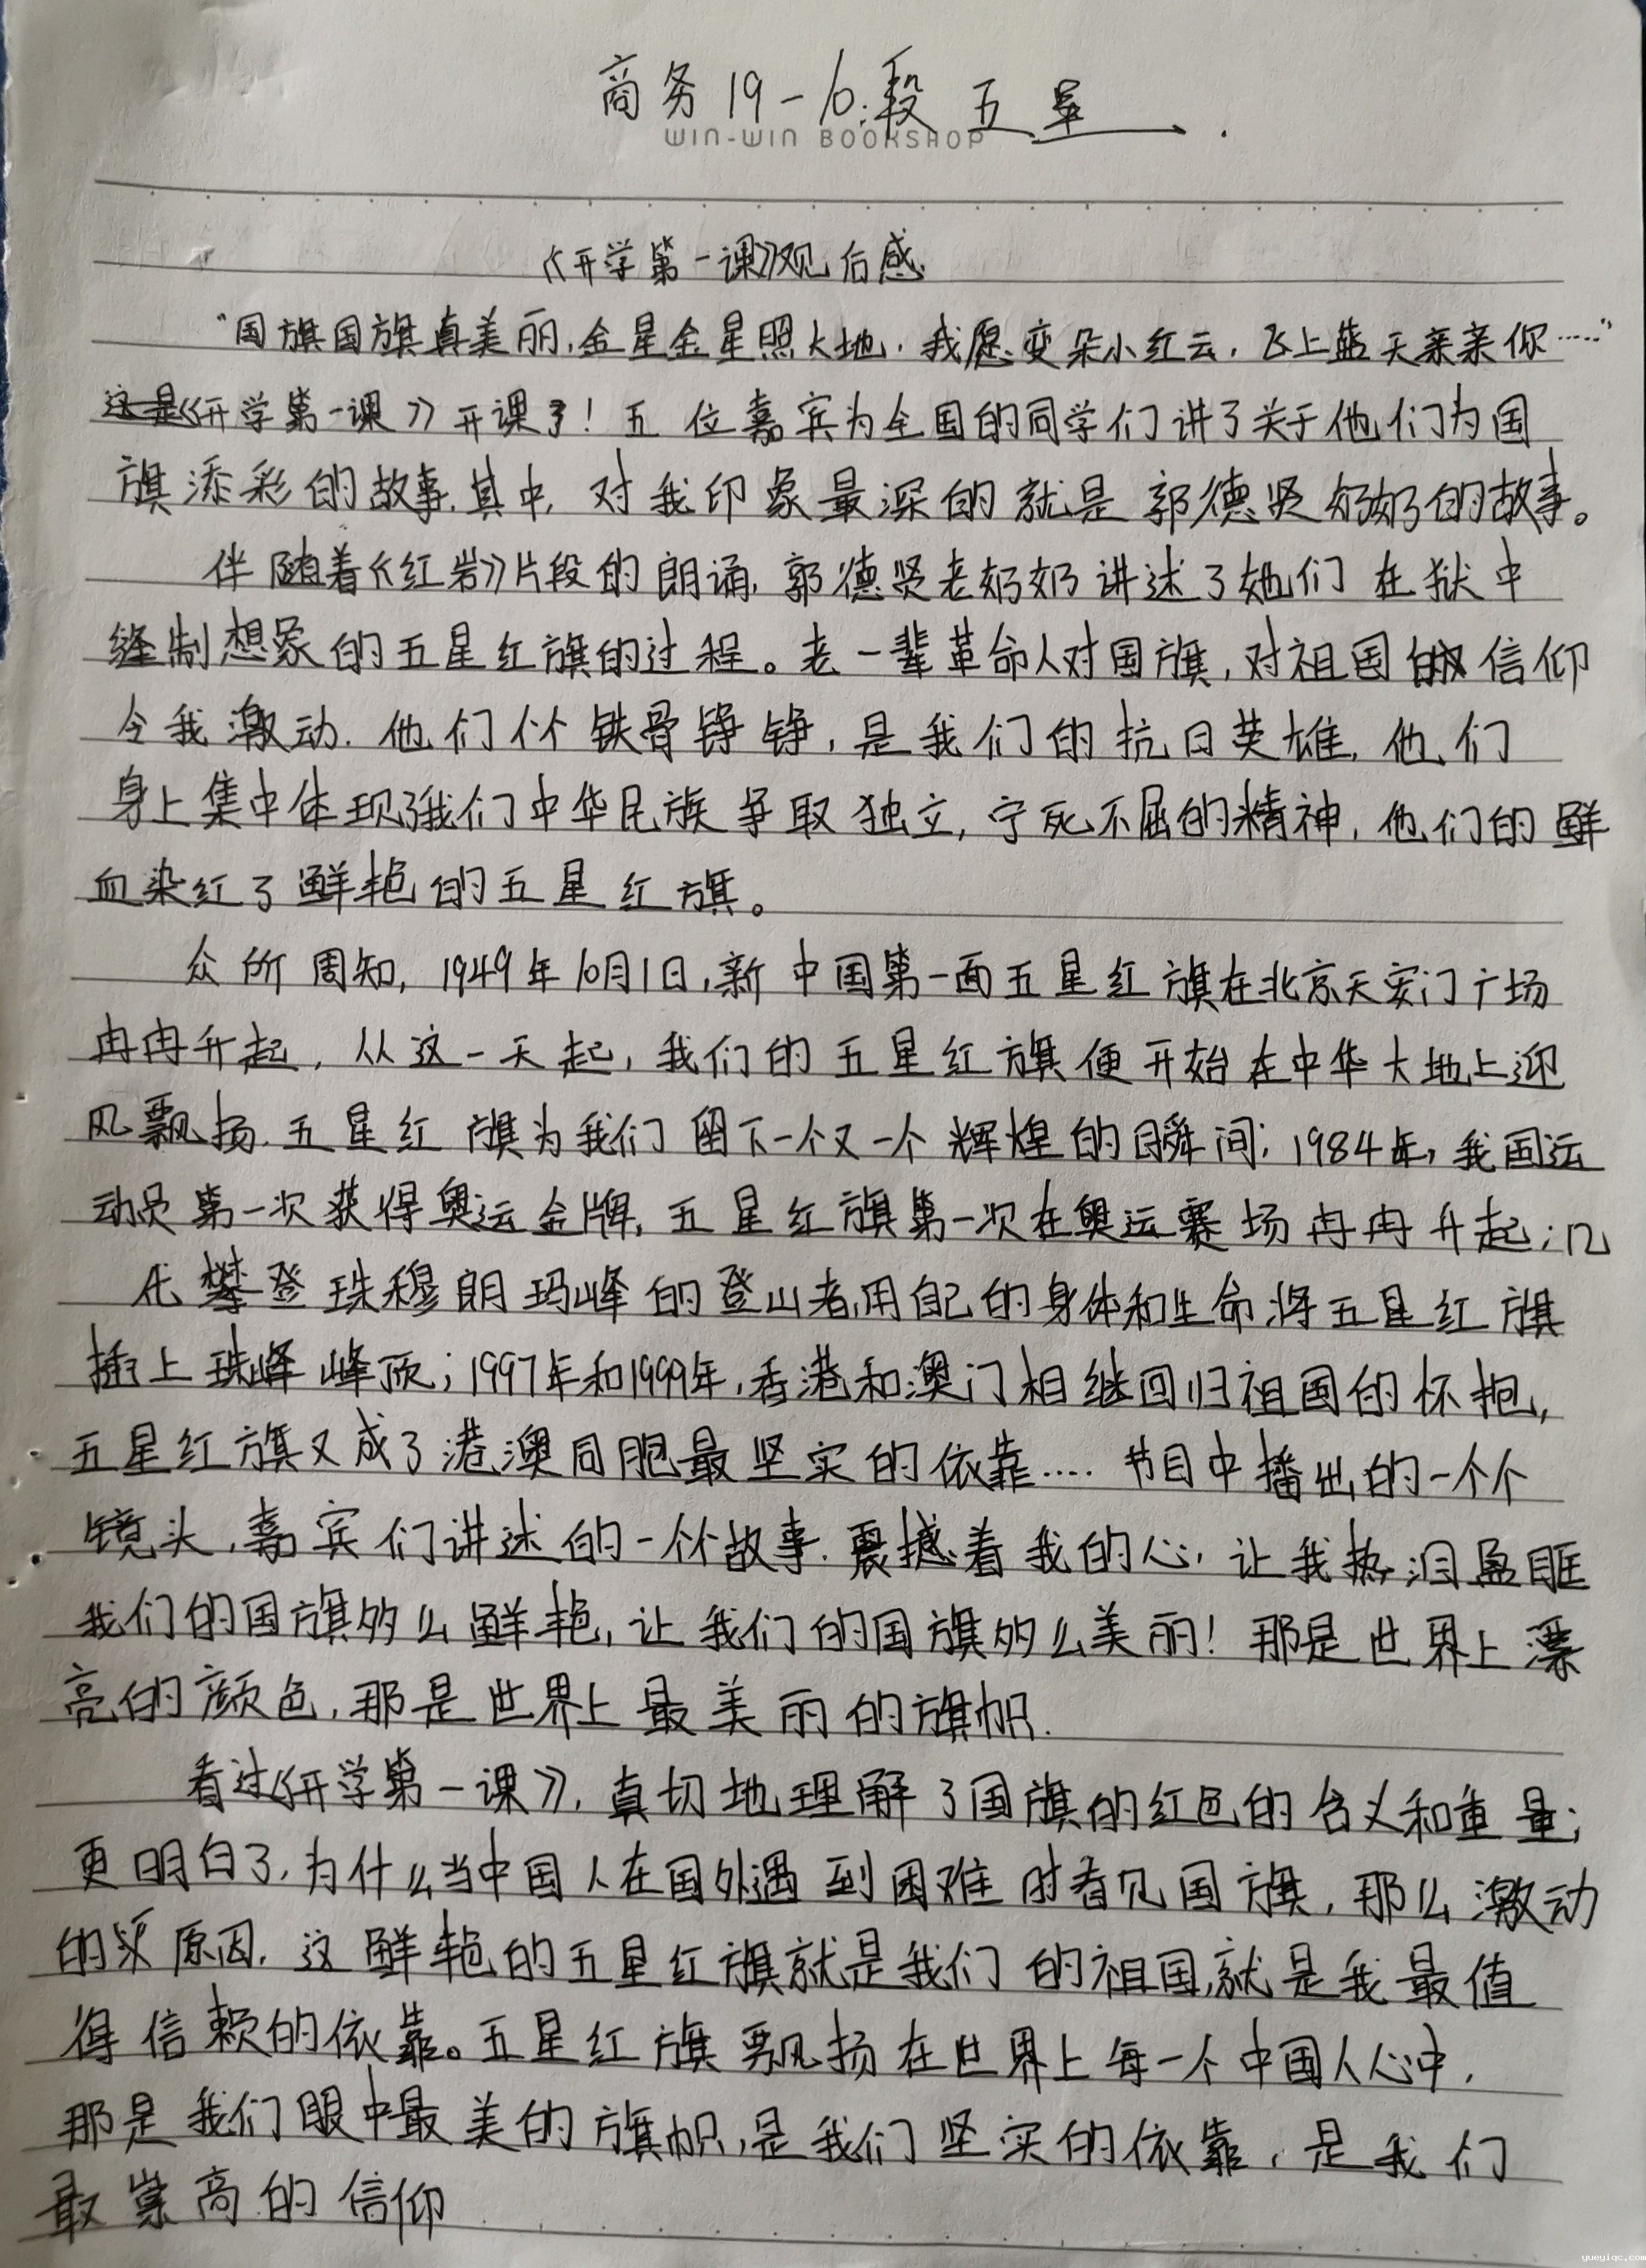 商务19-10段五星
WIN-WIN BOOKSHOP
《开学第一课》观后感
“国旗国旗真美丽,金星金星照大地,我愿变朵小红云,飞上蓝天亲亲你……”
这是《开学第一课》开课了!五位嘉宾为全国的同学们讲了关于他们为国
旗添彩的故事.其中,对我印象最深的就是郭德贤奶奶的故事。
伴随着《红岩》片段的朗诵,郭德贤老奶奶讲述了她们在狱中
缝制想象的五星红旗的过程。老一辈革命人对国旗,对祖国的信仰
令我激动.他们个个铁骨铮铮,是我们的抗日英雄,他们
身上集中体现了我们中华民族争取独立,宁死不屈的精神,他们的鲜
血染红了鲜艳的五星红旗。
众所周知,1949年10月1日,新中国第一面五星红旗在北京天安门广场
冉冉升起,从这一天起,我们的五星红旗便开始在中华大地上迎
风飘扬.五星红旗为我们留下一个又一个辉煌的瞬间;1984年,我国运
动员第一次获得奥运金牌,五星红旗第一次在奥运赛场冉冉升起;几
代攀登珠穆朗玛峰的登山者,用自己的身体和生命将五星红旗
插上珠峰峰顶;1997年和1999年,香港和澳门相继回归祖国的怀抱,
五星红旗又成了港澳同胞最坚实的依靠....节目中播出的一个个
镜头,嘉宾们讲述的一个个故事.震撼着我的心,让我热泪盈眶
我们的国旗多么鲜艳,让我们的国旗多么美丽!那是世界上漂
亮的颜色,那是世界上最美丽的旗帜.
看过《开学第一课》,真切地理解了国旗的红色的含义和重量;
更明白了,为什么当中国人在国外遇到困难时看见国旗,那么激动
的原因.这鲜艳的五星红旗就是我们的祖国,就是我最值
得信赖的依靠。五星红旗飘扬在世界上每一个中国人心中,
那是我们眼中最美的旗帜,是我们坚实的依靠,是我们
最崇高的信仰
yueyiqc.com